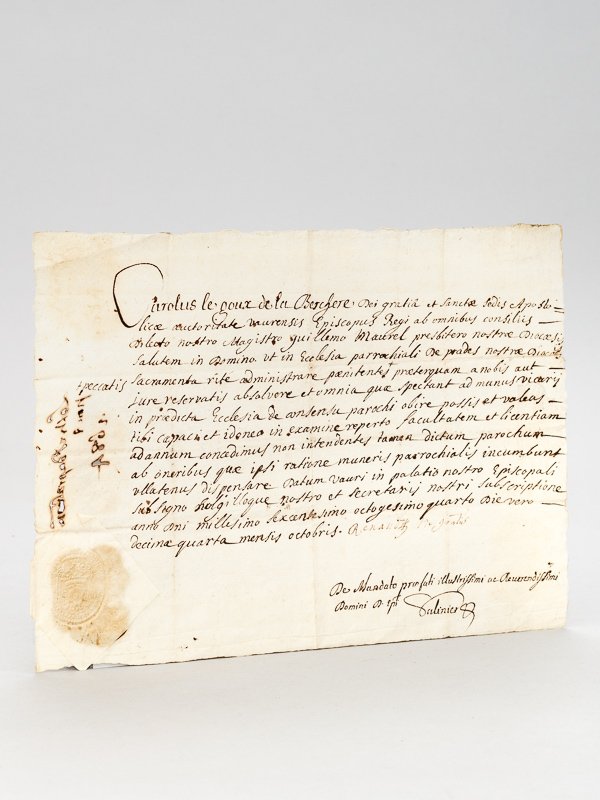 Carolus le goux de la Berchere Dei gratia et sanctæ sedis Aposto=
licæ auctoritate vaurensis Episcopus Regi ab omnibus consiliis
Dilecto nostro Magistro guillelmo Maurel presbitero nostræ Diœcesis
salutem in Domino. Vt in Ecclesia parrochiali De prades nostræ Diœcesis
sacramenta rite administrare pœnitentes præterquam a nobis aut
peccatis
iure reservatis absolvere et omnia quæ spectant ad munus vicarij
in prædicta Ecclesia de consensu parochi obire possis et valeas
tibi capaci et idoneo in examine reperto facultatem et licentiam
ad annum concedimus non intendentes tamen dictum parochum
ab oneribus quæ ipsi ratione muneris parrochialis incumbunt
ullatenus dispensare Datum Vauri in palatio nostro Episcopali
sub signo sigilloque nostro et secretarii nostri subscriptione
anno Dni millesimo sexcentesimo octogesimo quarto Die vero
decima quarta mensis octobris.
De Mandato præfati illustrissimi ac Reverendissimi
Domini D. Epi
1684